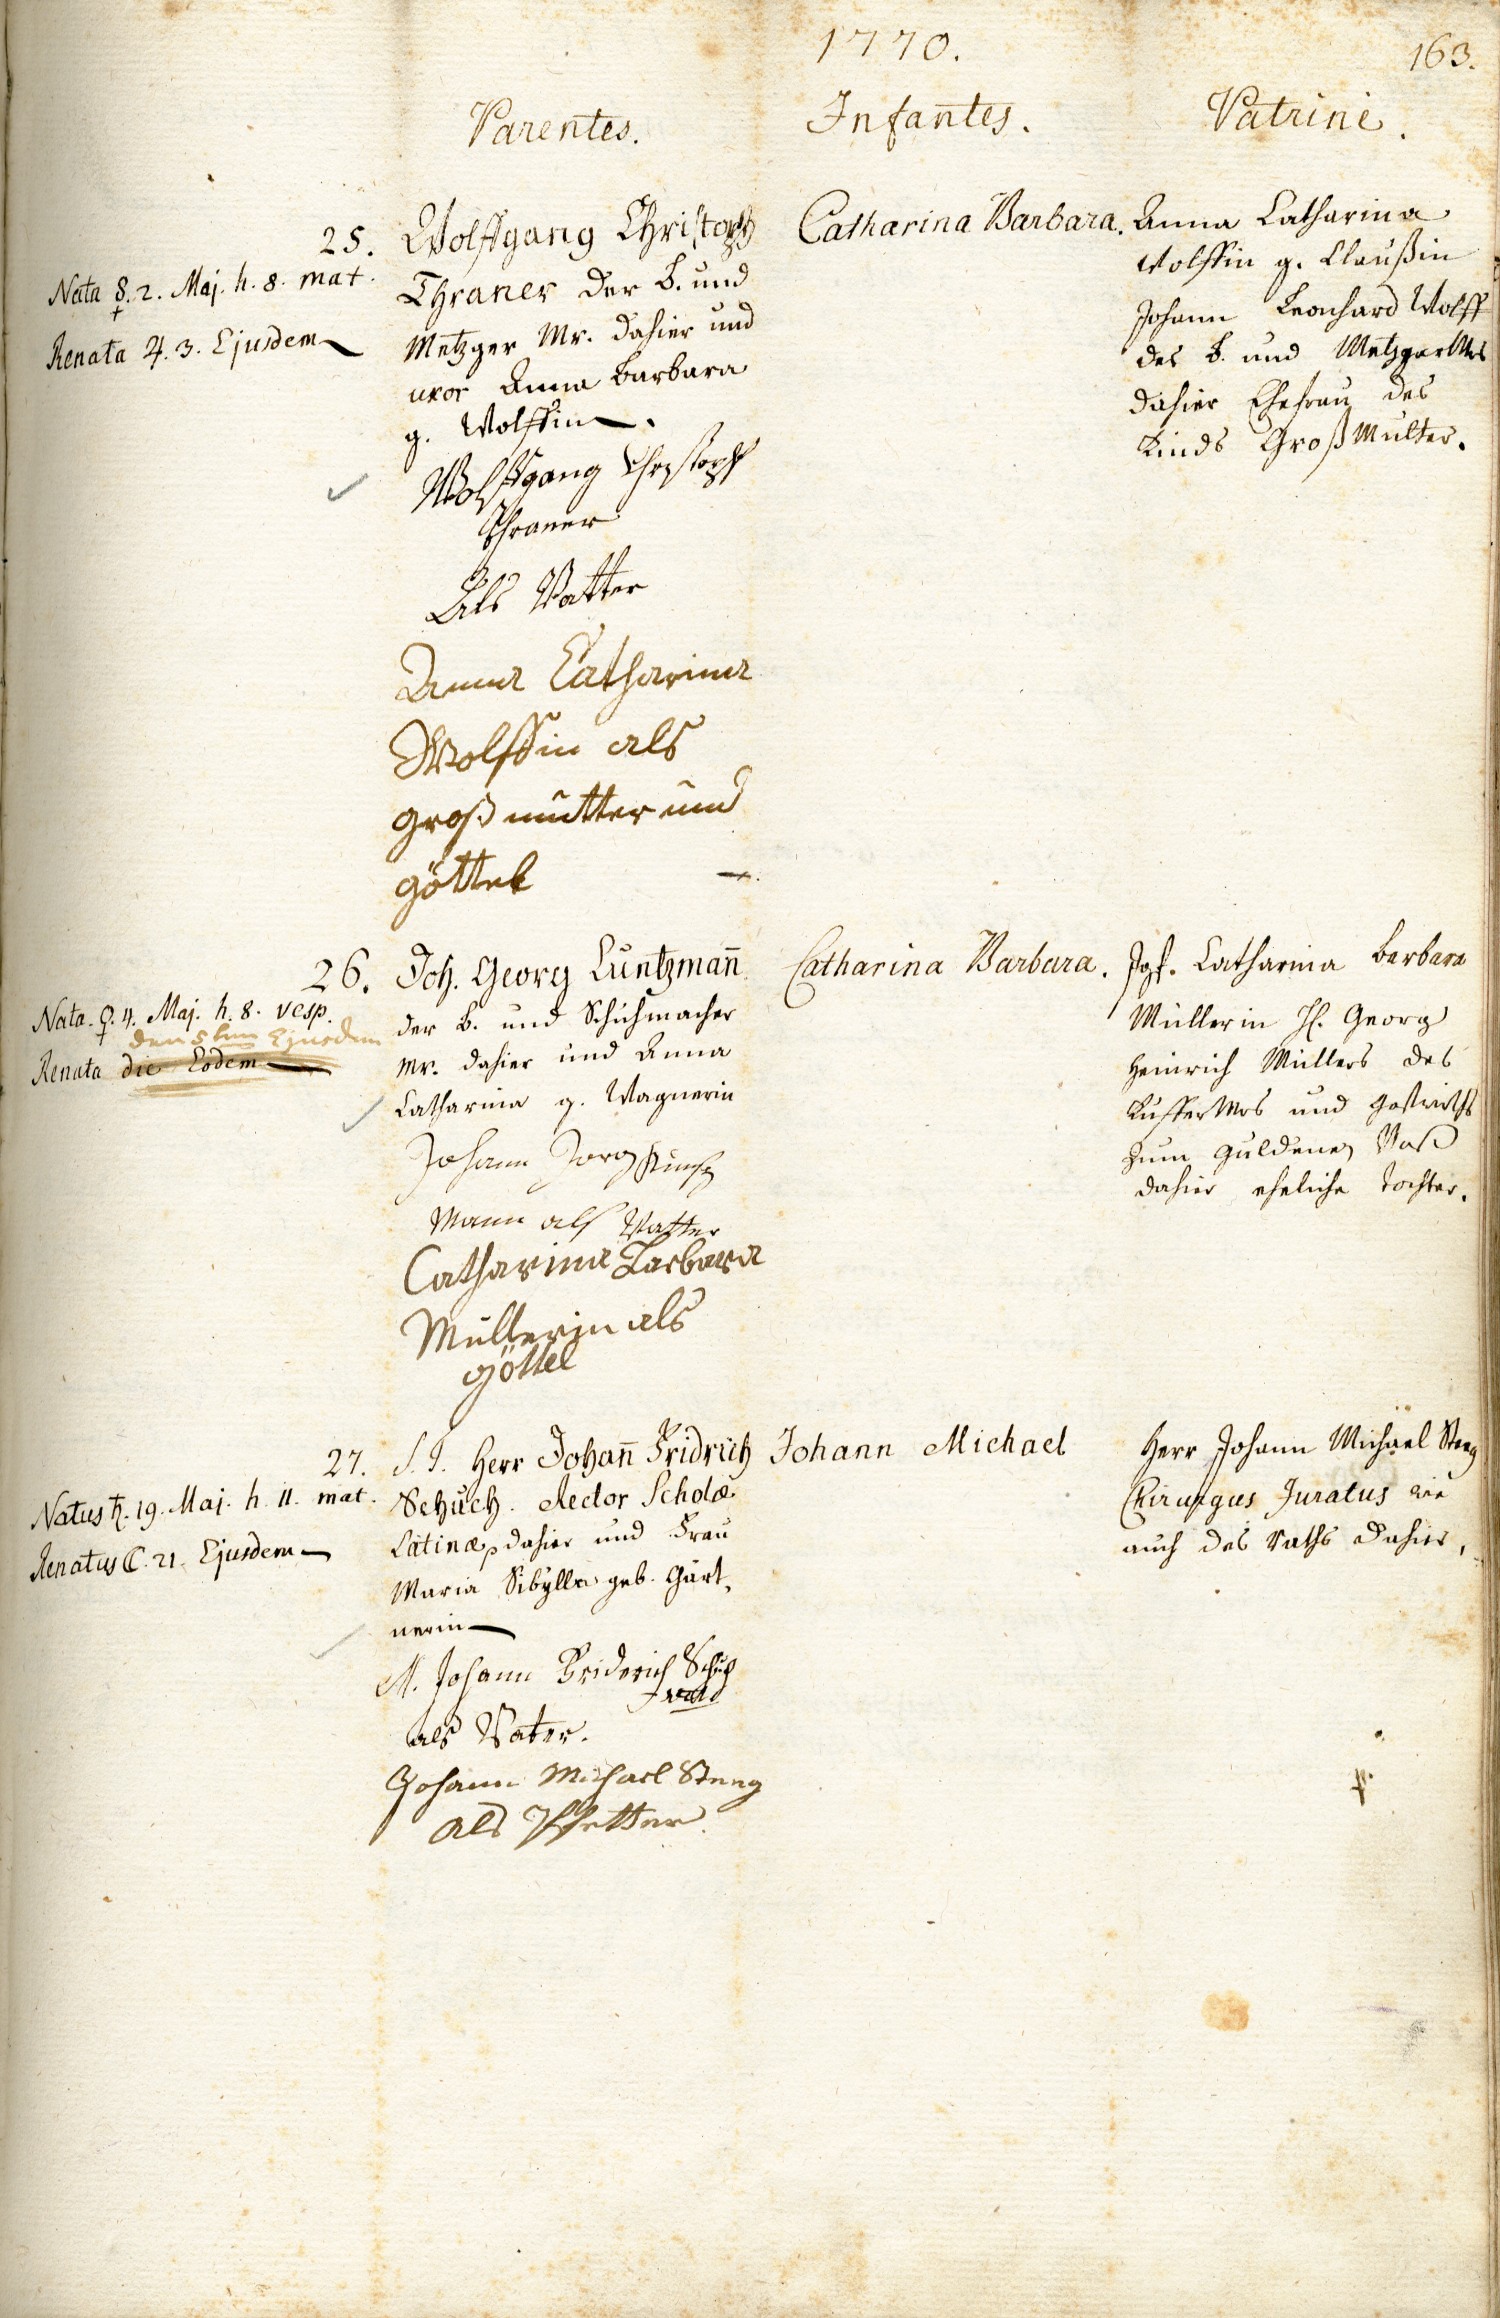 1770.
163.
Parentes.
Infantes.
Patrini.
25.
Nata ☿. 2. Maj. h. 8. mat.
Renata ♃. 3. Ejusdem
Wolffgang Christoph
Thraner der B. und
Metzger Mr. dahier und
uxor Anna Barbara
g. Wolffin.
Wolffgang Christoph
Thraner
Als Vatter
Anna Catharina
Wolffin als
großmutter und
göttel
Catharina Barbara.
Anna Catharina
Wolffin g. Claußin
Johann Leonhard Wolff
des B. und MetzgerMrs
dahier Ehefrau des
Kinds GroßMutter.
26.
Nata. ♀. 4. Maj. h. 8. vesp.
den 5ten Ejusdem
Renata die Eodem
Joh. Georg Cuntzmañ
der B. und Schuhmacher
Mr. dahier und Anna
Catharina g. Wagnerin
Johann Jorg Kuntz
Mann als Vatter
Catharina Barbara
Mullerin als
göttel
Catharina Barbara.
Jgf. Catharina Barbara
Müllerin H. Georg
Heinrich Müllers des
KufferMrs und Gastwirths
zum guldenen Vaß
dahier eheliche Tochter.
27.
Natus ♄. 19. Maj. h. 11. mat.
Renatus ☾. 21. Ejusdem
S. T. Herr Johañ Fridrich
Schuch. Rector Scholæ
Latinæ, dahier und Frau
Maria Sibylla geb. Gärt,
nerin
M. Johann Friderich Schuch
als Vater.
Johann Michael Steeg
als Pfetter.
Johann Michael
Herr Johann Michael Steeg
Chirurgus Juratus wie
auch des Raths dahier,